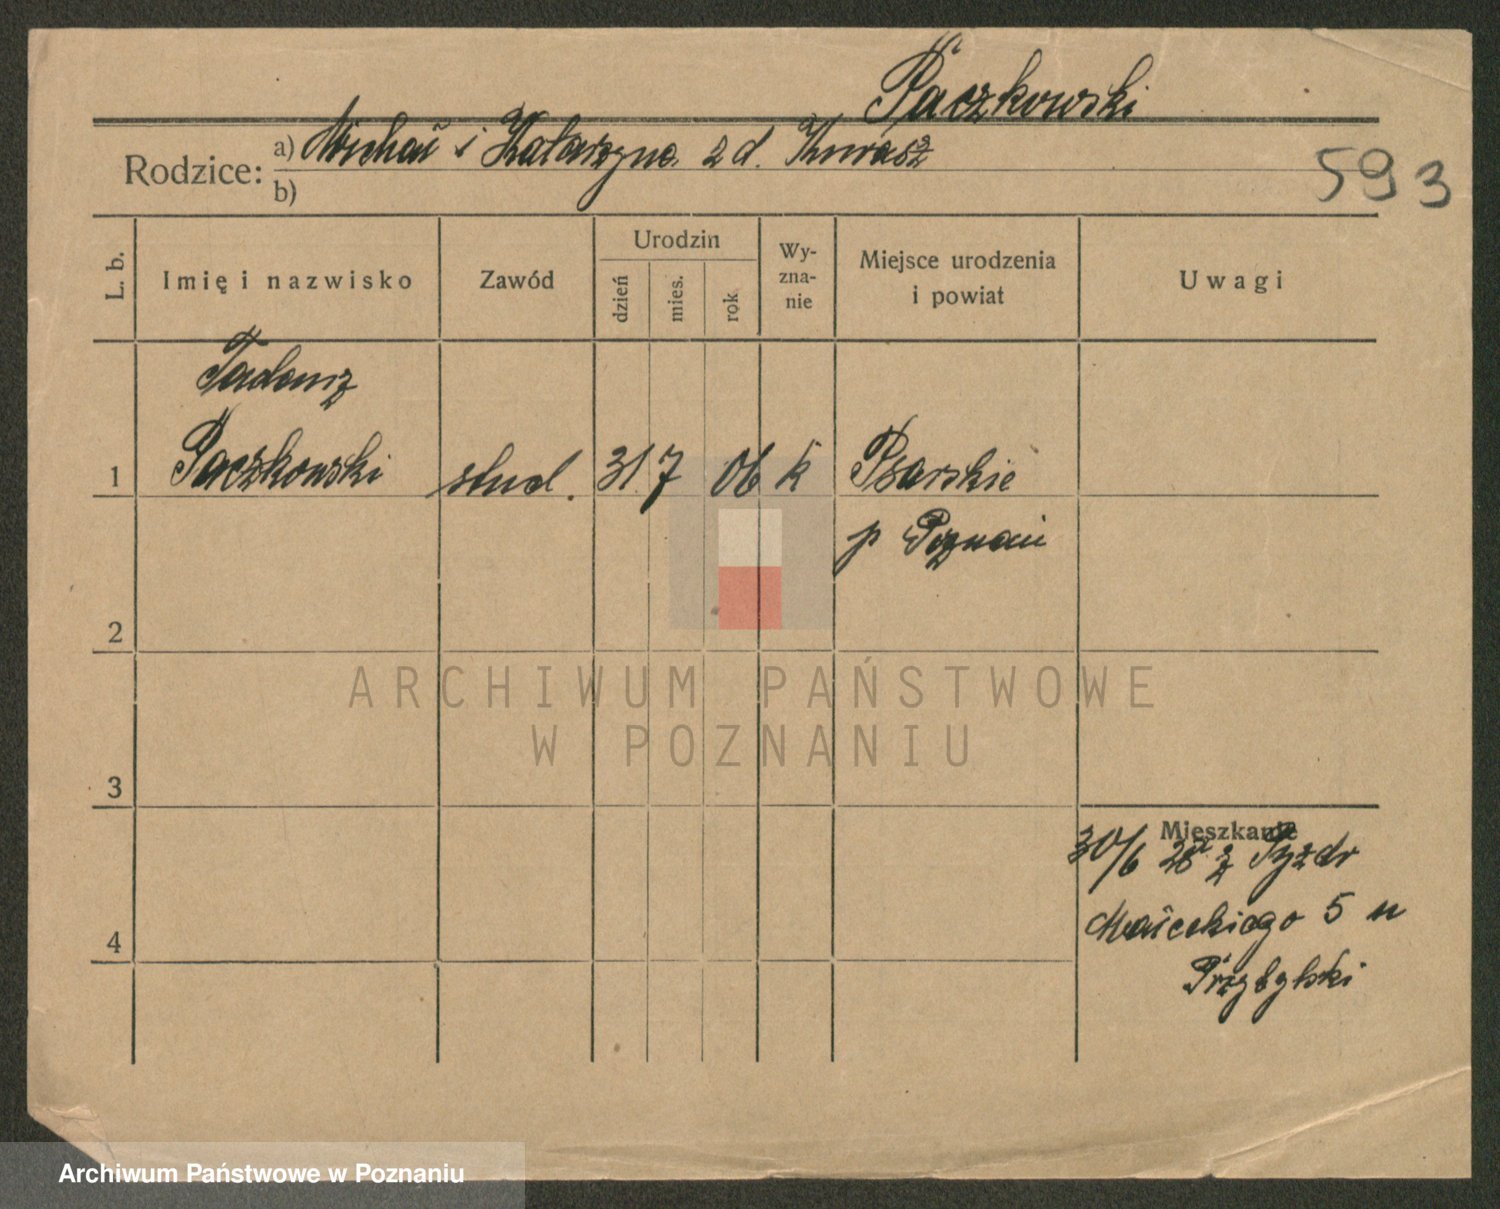 Paczkowski
Rodzice: a) Michał i Katarzyna z d. Kurasz
b)
593
L. b. Imię i nazwisko Zawód Urodzin dzień mies. rok Wy-zna-nie Miejsce urodzenia i powiat Uwagi
Tadeusz
1 Paczkowski stud. 31 7 06 k Psarskie
p Poznań
2
ARCHIWUM PAŃSTWOWE
W POZNANIU
3
Mieszkanie
30/6 28 z
4 Małeckiego 5 u
Przybylski
Archiwum Państwowe w Poznaniu